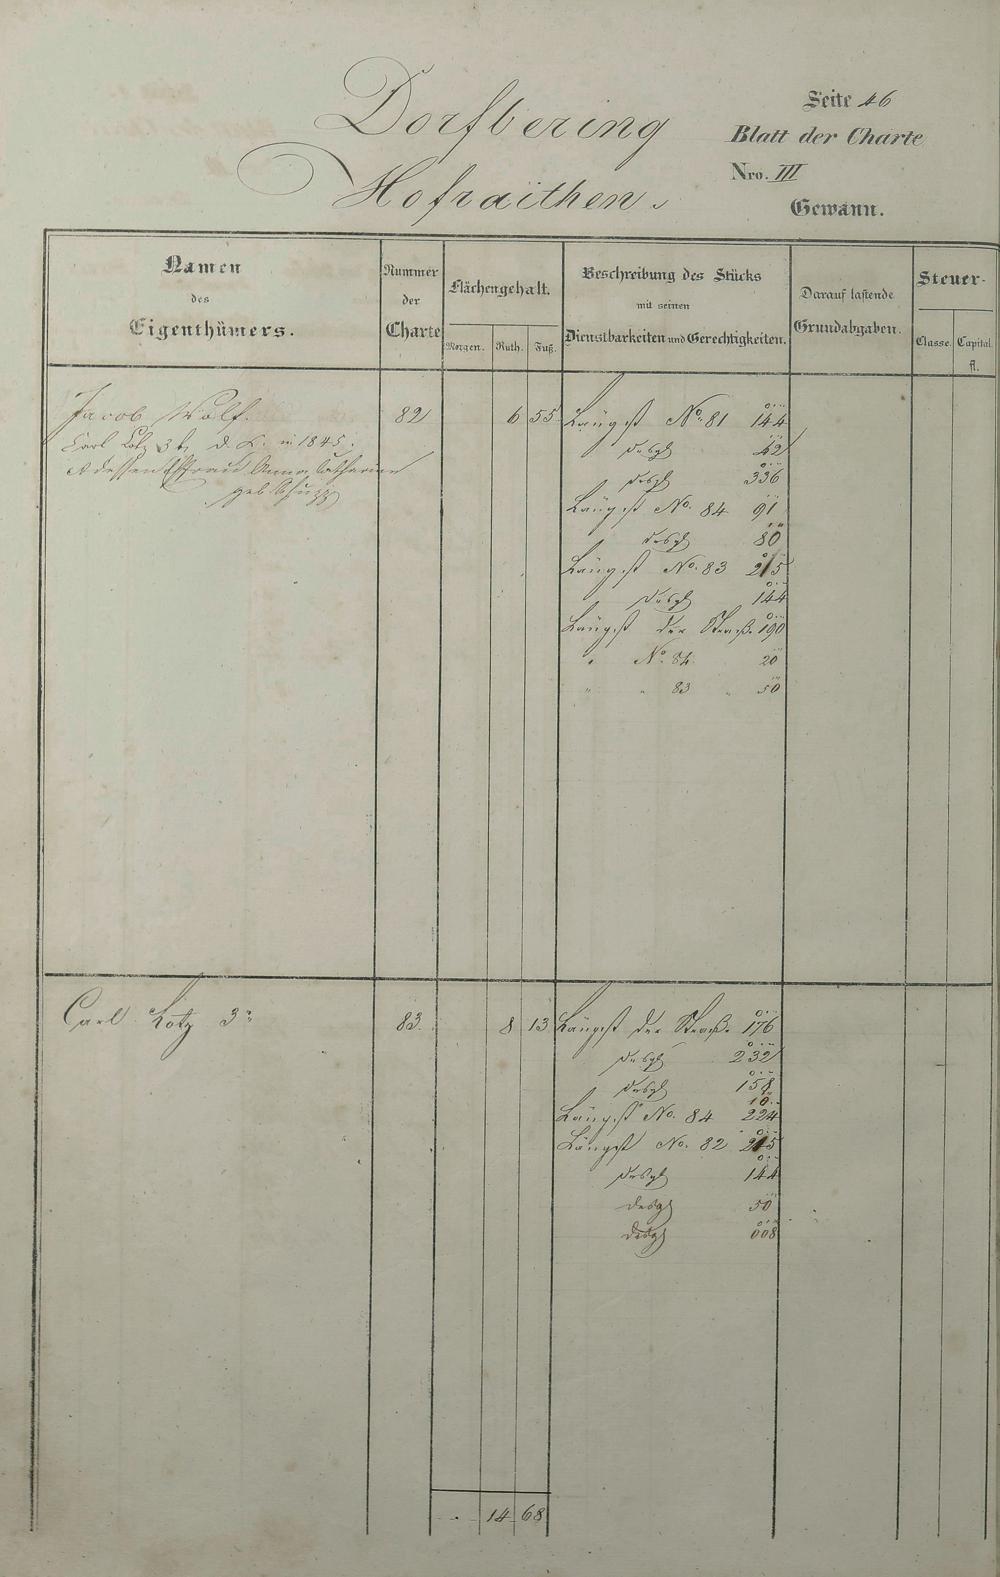 Dorfbering
Hofraithen.
Seite 46
Blatt der Charte
Nro. III
Gewann.
Namen
des
Eigenthümers.
Nummer
der
Charte
Flächengehalt.
Morgen. Ruth. Fuß.
Beschreibung des Stücks
mit seinen
Dienstbarkeiten und Gerechtigkeiten.
Darauf lastende
Grundabgaben.
Steuer-
Classe. Capital.
fl.
Jacob Wolf. 82 6 55 Längst No. 81 144
Carl Lotz 3t. d. K. in 1845. desgl 42
dessen Ehefrau Anna Catharine desgl 336
geb.
Längst No. 84 91
desgl 80
Längst No. 83 215
desgl 144
Längst der Straße 190
" No. 84 20
" " 83 " 50
Carl Lotz 3r 83. 8 13 Längst der Straße 176
desgl 232
desgl 158
10
Längst No. 84 224
Längst No. 82 215
desgl 144
desgl 50
desgl 008
14 68